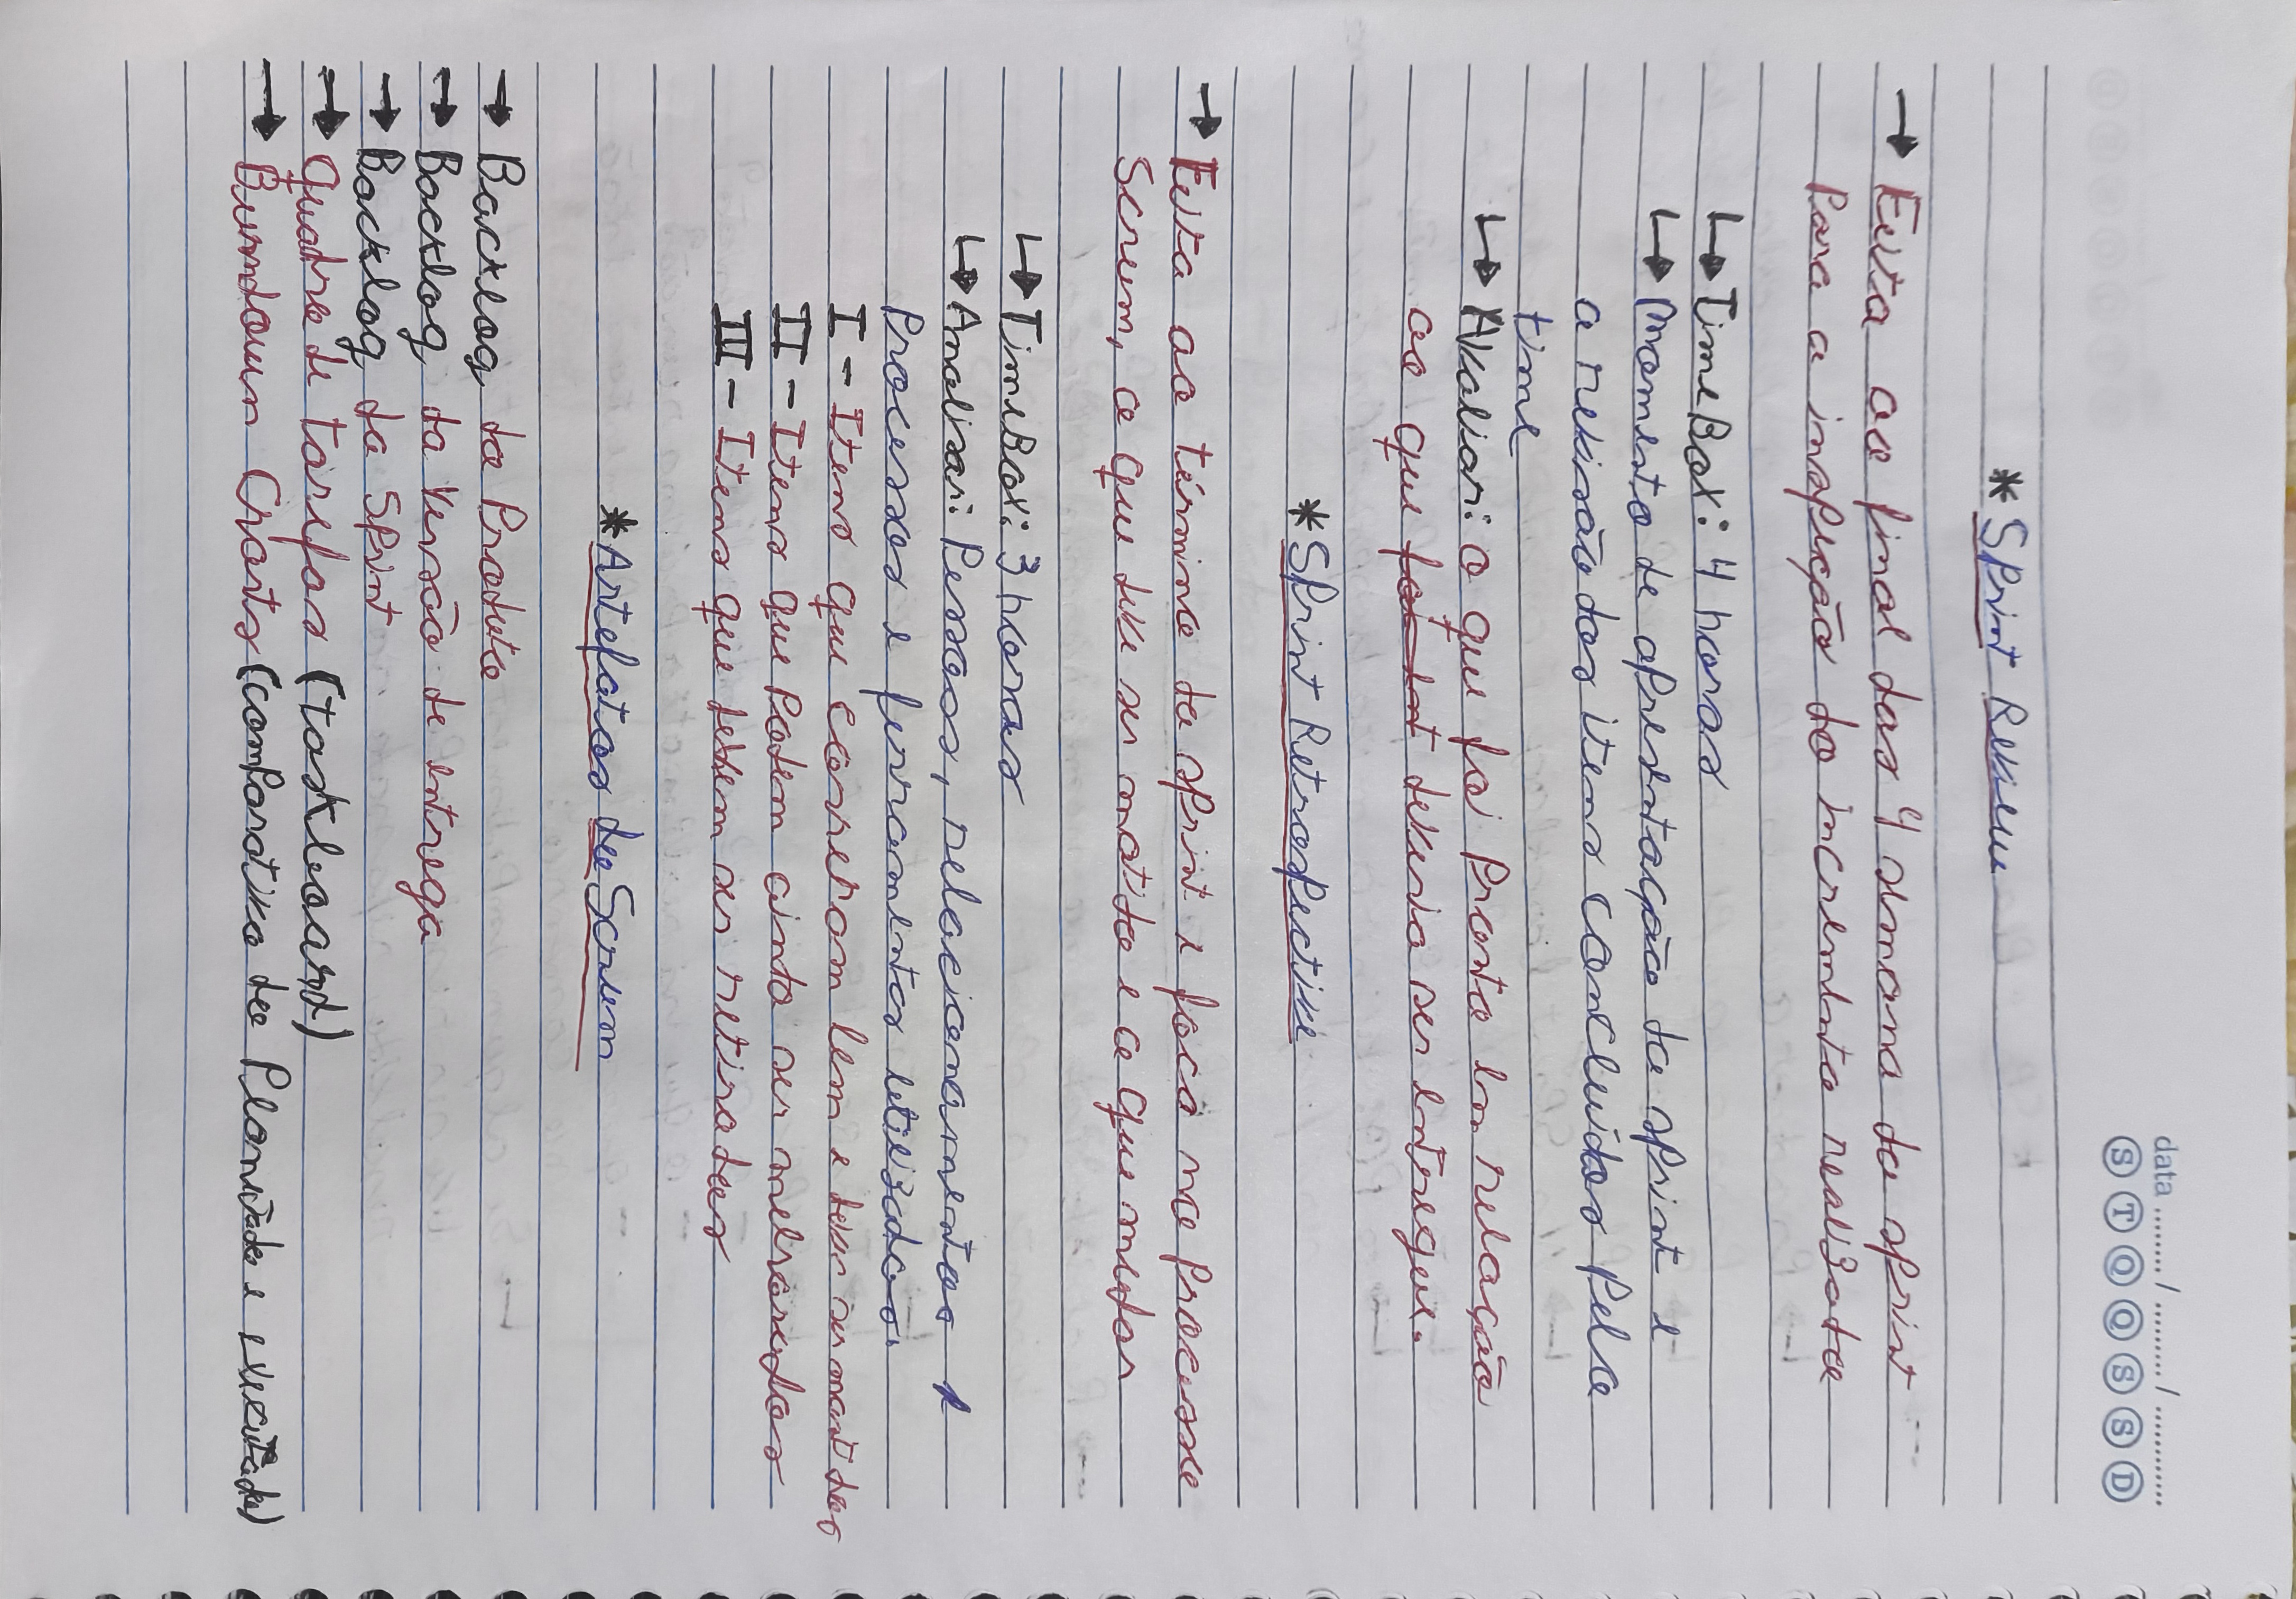 data ........ / ......... / ............
S T Q Q S S D
* Sprint Review
→ Feita ao final das 4 semana da sprint
Para a inspeção do incremento realizado
↳ TimeBox: 4 horas
↳ Momento de apresentação da sprint e
a revisão dos itens concluídos pelo
time
↳ Avaliar: o que foi Pronto em relação
ao que deveria ser entregue.
* Sprint Retrospective
→ Feita ao término da sprint e foca no processo
Scrum, o que deve ser matido e o que mudar
↳ TimeBox: 3 horas
↳ Analisar: Pessoas, relacionamentos
Processos e ferramentas utilizadas.
I - Itens que correram bem e dever ser mantidos
II - Itens que Podem ainda ser melhorados
III - Itens que devem ser retirados
* Artefatos do Scrum
→ Backlog do Produto
→ Backlog da Versão de entrega
→ Backlog da Sprint
→ Quadro de tarefas (taskboard)
→ Burndown Charts (comparativo do Planejado e executado)